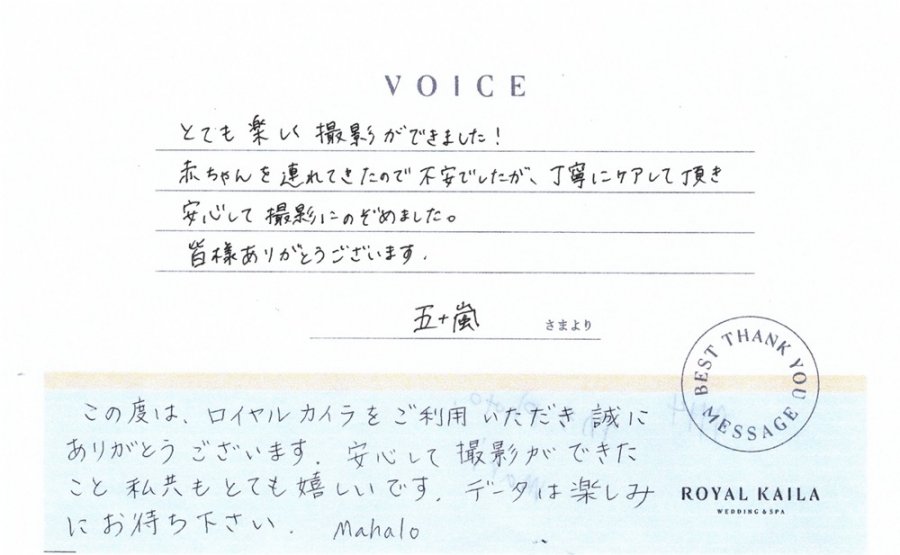 VOICE
とても楽しく撮影ができました!
赤ちゃんを連れてきたので不安でしたが、丁寧にケアして頂き
安心して撮影にのぞめました。
皆様ありがとうございます.
五十嵐 さまより
BEST THANK YOU MESSAGE
この度は、ロイヤルカイラをご利用いただき誠に
ありがとうございます. 安心して撮影ができた
こと私共もとても嬉しいです. データは楽しみ
にお待ち下さい. Mahalo
ROYAL KAILA
WEDDING & SPA